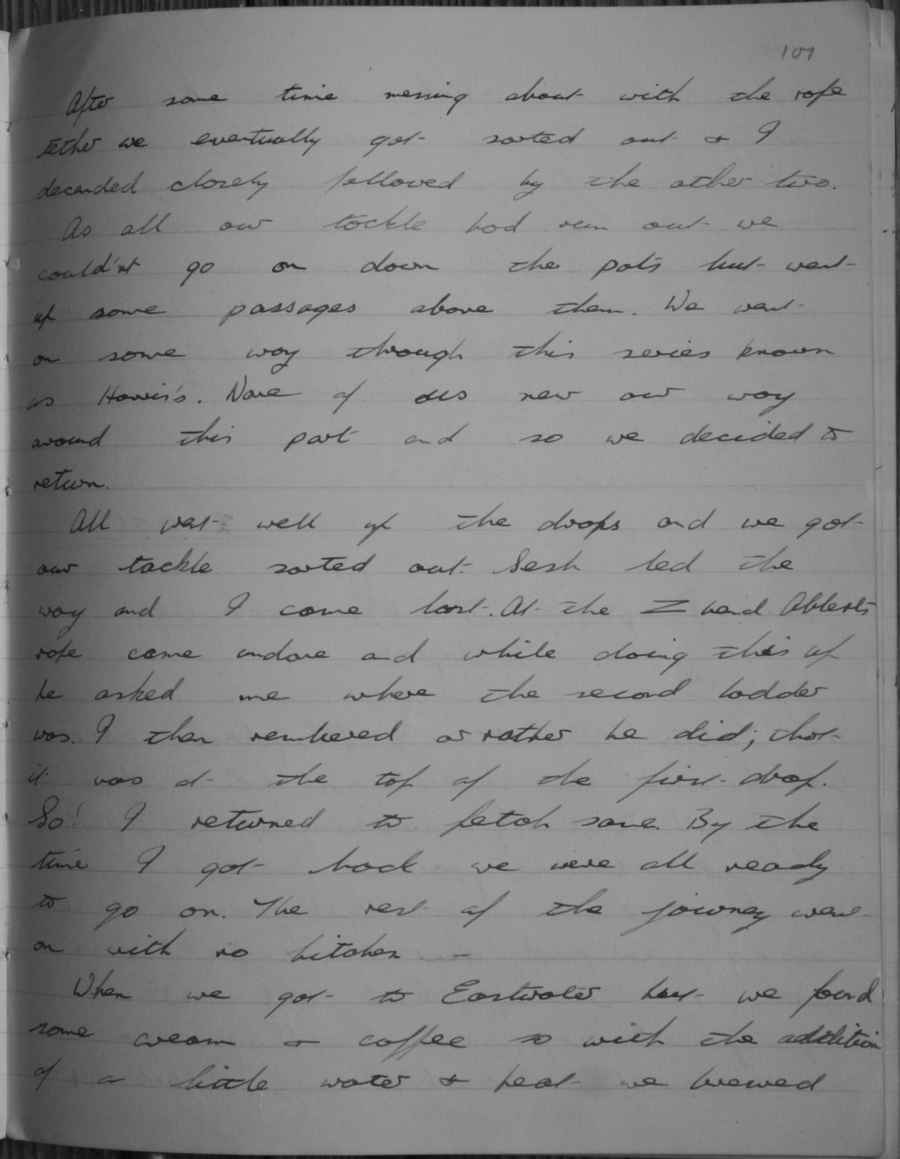 107
After some time messing about with the rope
tether we eventually got sorted out & I
decended closely followed by the other two.
As all our tackle had run out we
could'nt go on down the pots but went
up some passages above them. We went
on some way through this series known
as Harris's. None of us new our way
around this part and so we decided to
return.
All went well up the drops and we got
our tackle sorted out. Sesh led the
way and I came last. At the Z bend
rope came undone and while doing this up
he asked me where the second ladder
was. I then rembered or rather he did; that
it was at the top of the first drop.
So! I returned to fetch same. By the
time I got back we were all ready
to go on. The rest of the journey went
on with no hitches –
When we got to Eastwater hut we found
some cream & coffee so with the addition
of a little water & heat we brewed